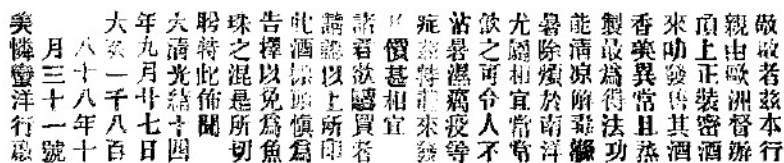 敬啟者茲本行
親由歐洲督辦
頂上正裝密酒
來叻發售其酒
香美異常且蒸
製最為得法功
能清凉解毒滌
暑除煩於南洋
尤屬相宜常常
飲之可令人不
沾暑濕癘疫等
症茲特 來發
價甚相宜
諸君欲購買者
請認以上所印
此酒牌頭慎為
告擇以免為魚
珠之混是所切
聆特此佈聞
大清光緒十四
年九月廿七日
大英一千八百
八十八年十
月三十一號
美憐蠻洋行啟